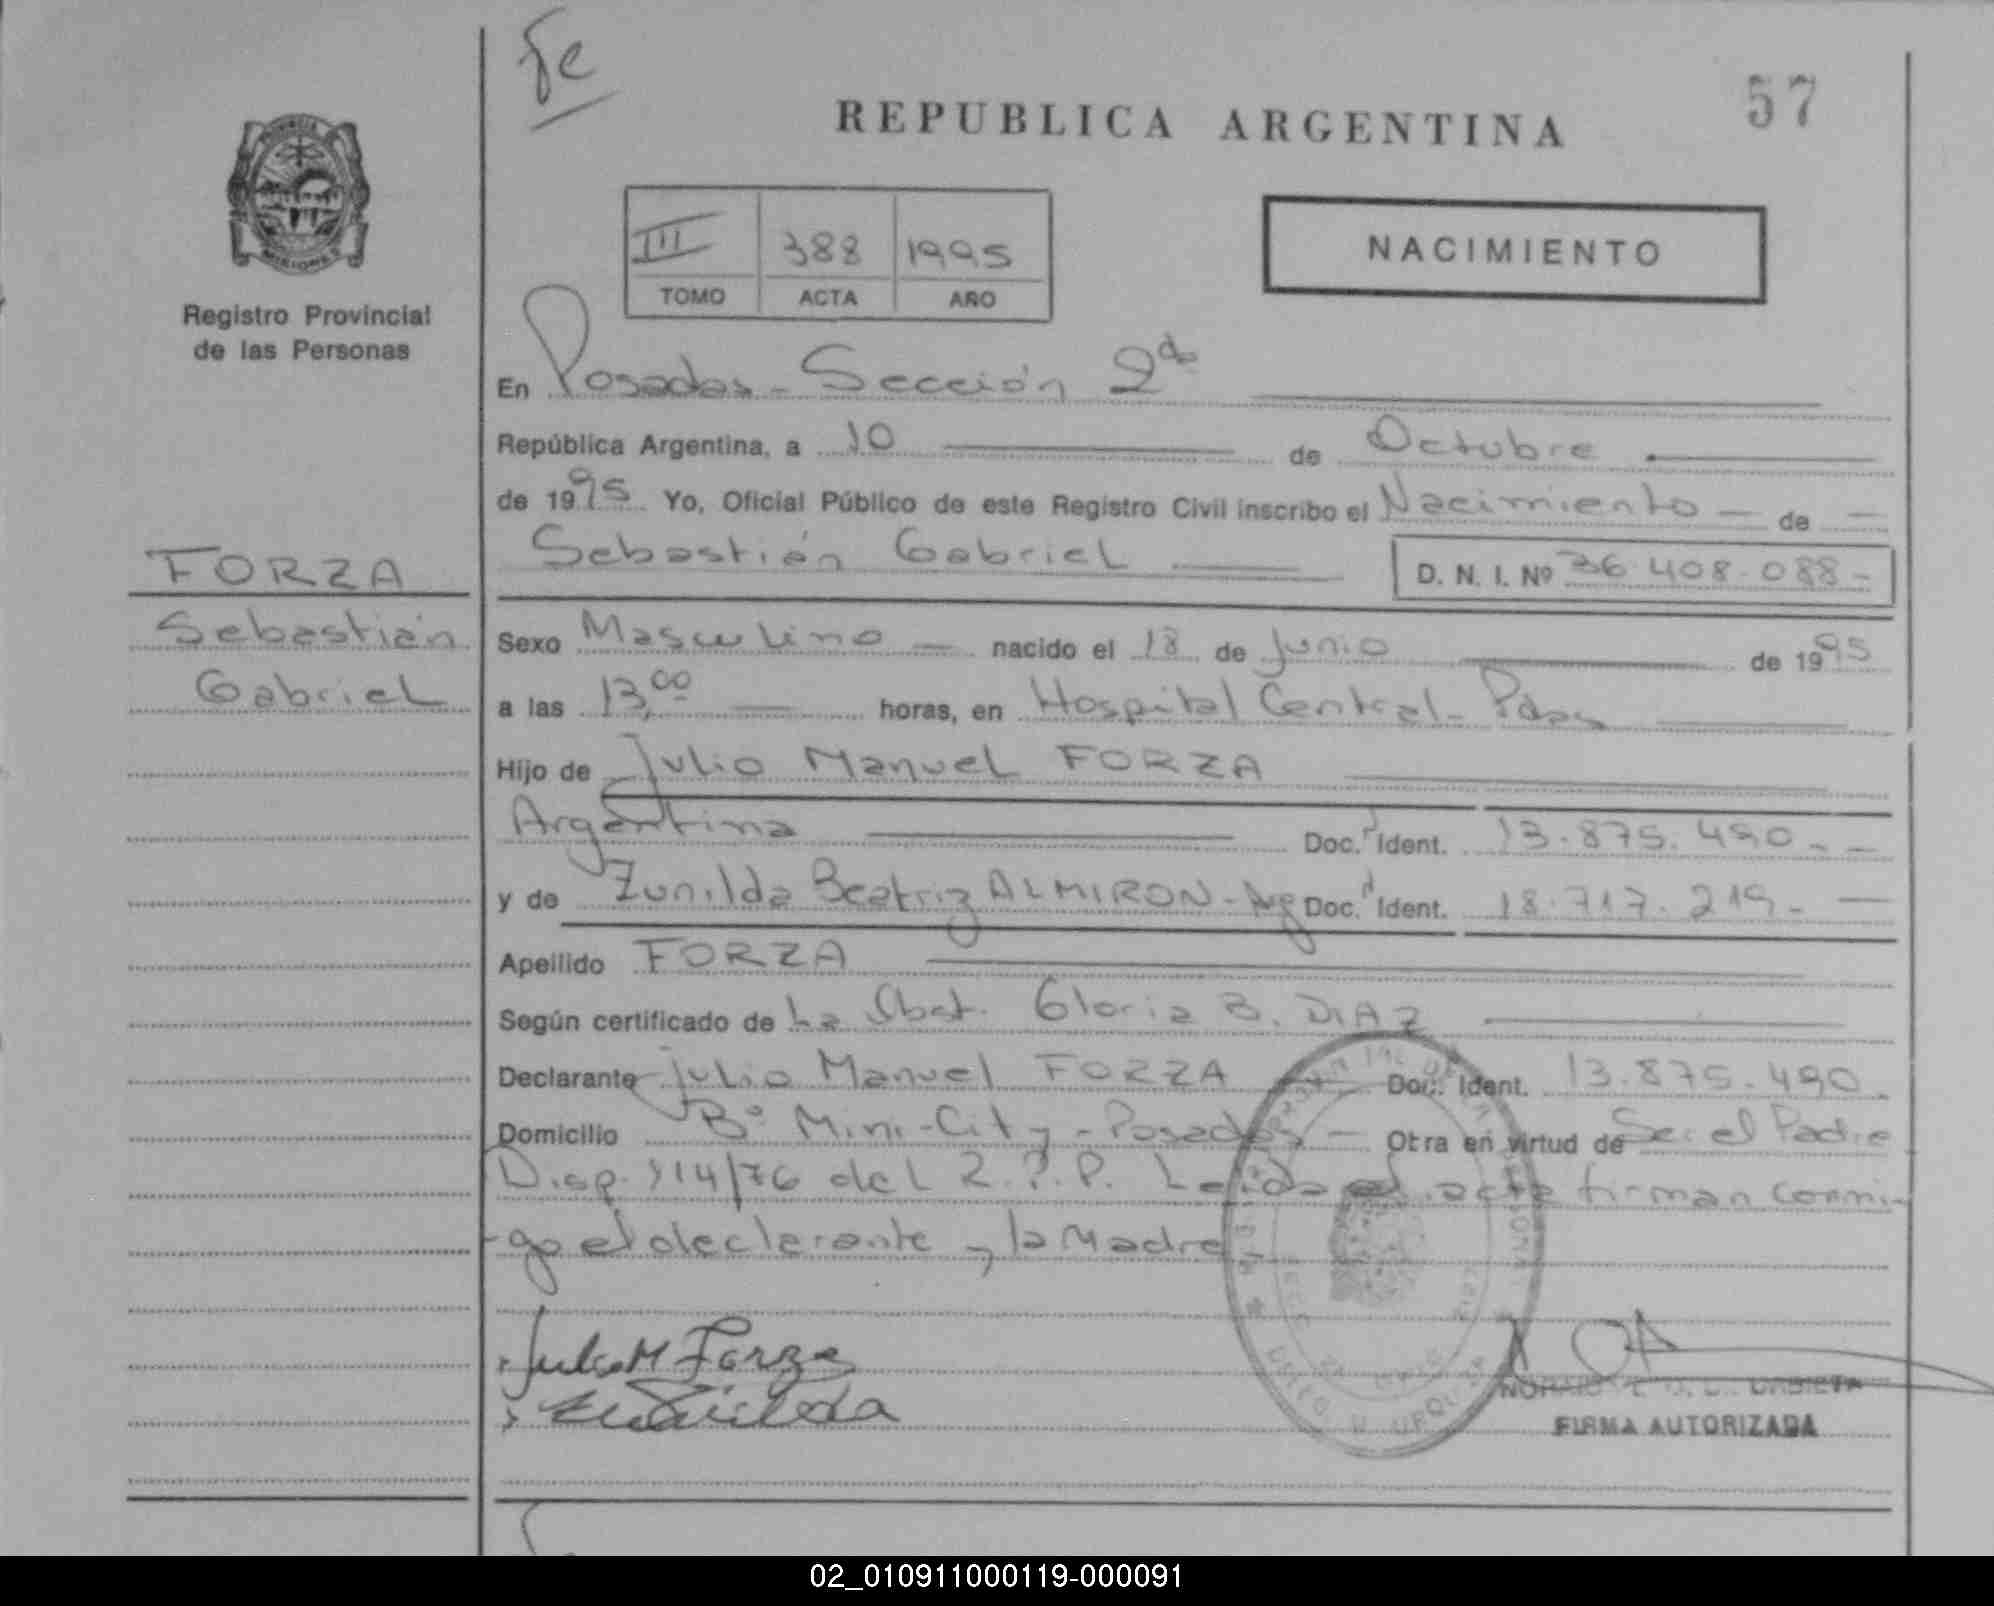 fe
REPUBLICA ARGENTINA
57
PROVINCIA
MISIONES
Registro Provincial
de las Personas
III 388 1995
TOMO ACTA AÑO
NACIMIENTO
En Posadas - Sección 2da
República Argentina, a 10 de Octubre
de 1995 Yo, Oficial Público de este Registro Civil inscribo el Nacimiento - de -
Sebastián Gabriel D. N. I. Nº 36.408.088-
FORZA
Sebastián
Gabriel
Sexo Masculino - nacido el 18 de Junio de 1995
a las 13,00 horas, en Hospital Central - Pdas
Hijo de Julio Manuel FORZA
Argentina Doc. Ident. 13.875.490 - -
y de Zunilda Beatriz ALMIRON - Arg Doc. Ident. 18.717.219 - -
Apellido FORZA
Según certificado de La Obst. Gloria B. DIAZ
Declarante Julio Manuel FORZA Doc. Ident. 13.875.490
Domicilio Bº Mini-City - Posadas - Otra en virtud de Ser el Padre
Disp. 114/76 del R.P.P. Leída el acta firman conmi-
go el declarante y la Madre -
Julio M Forza
FIRMA AUTORIZADA
02_010911000119-000091